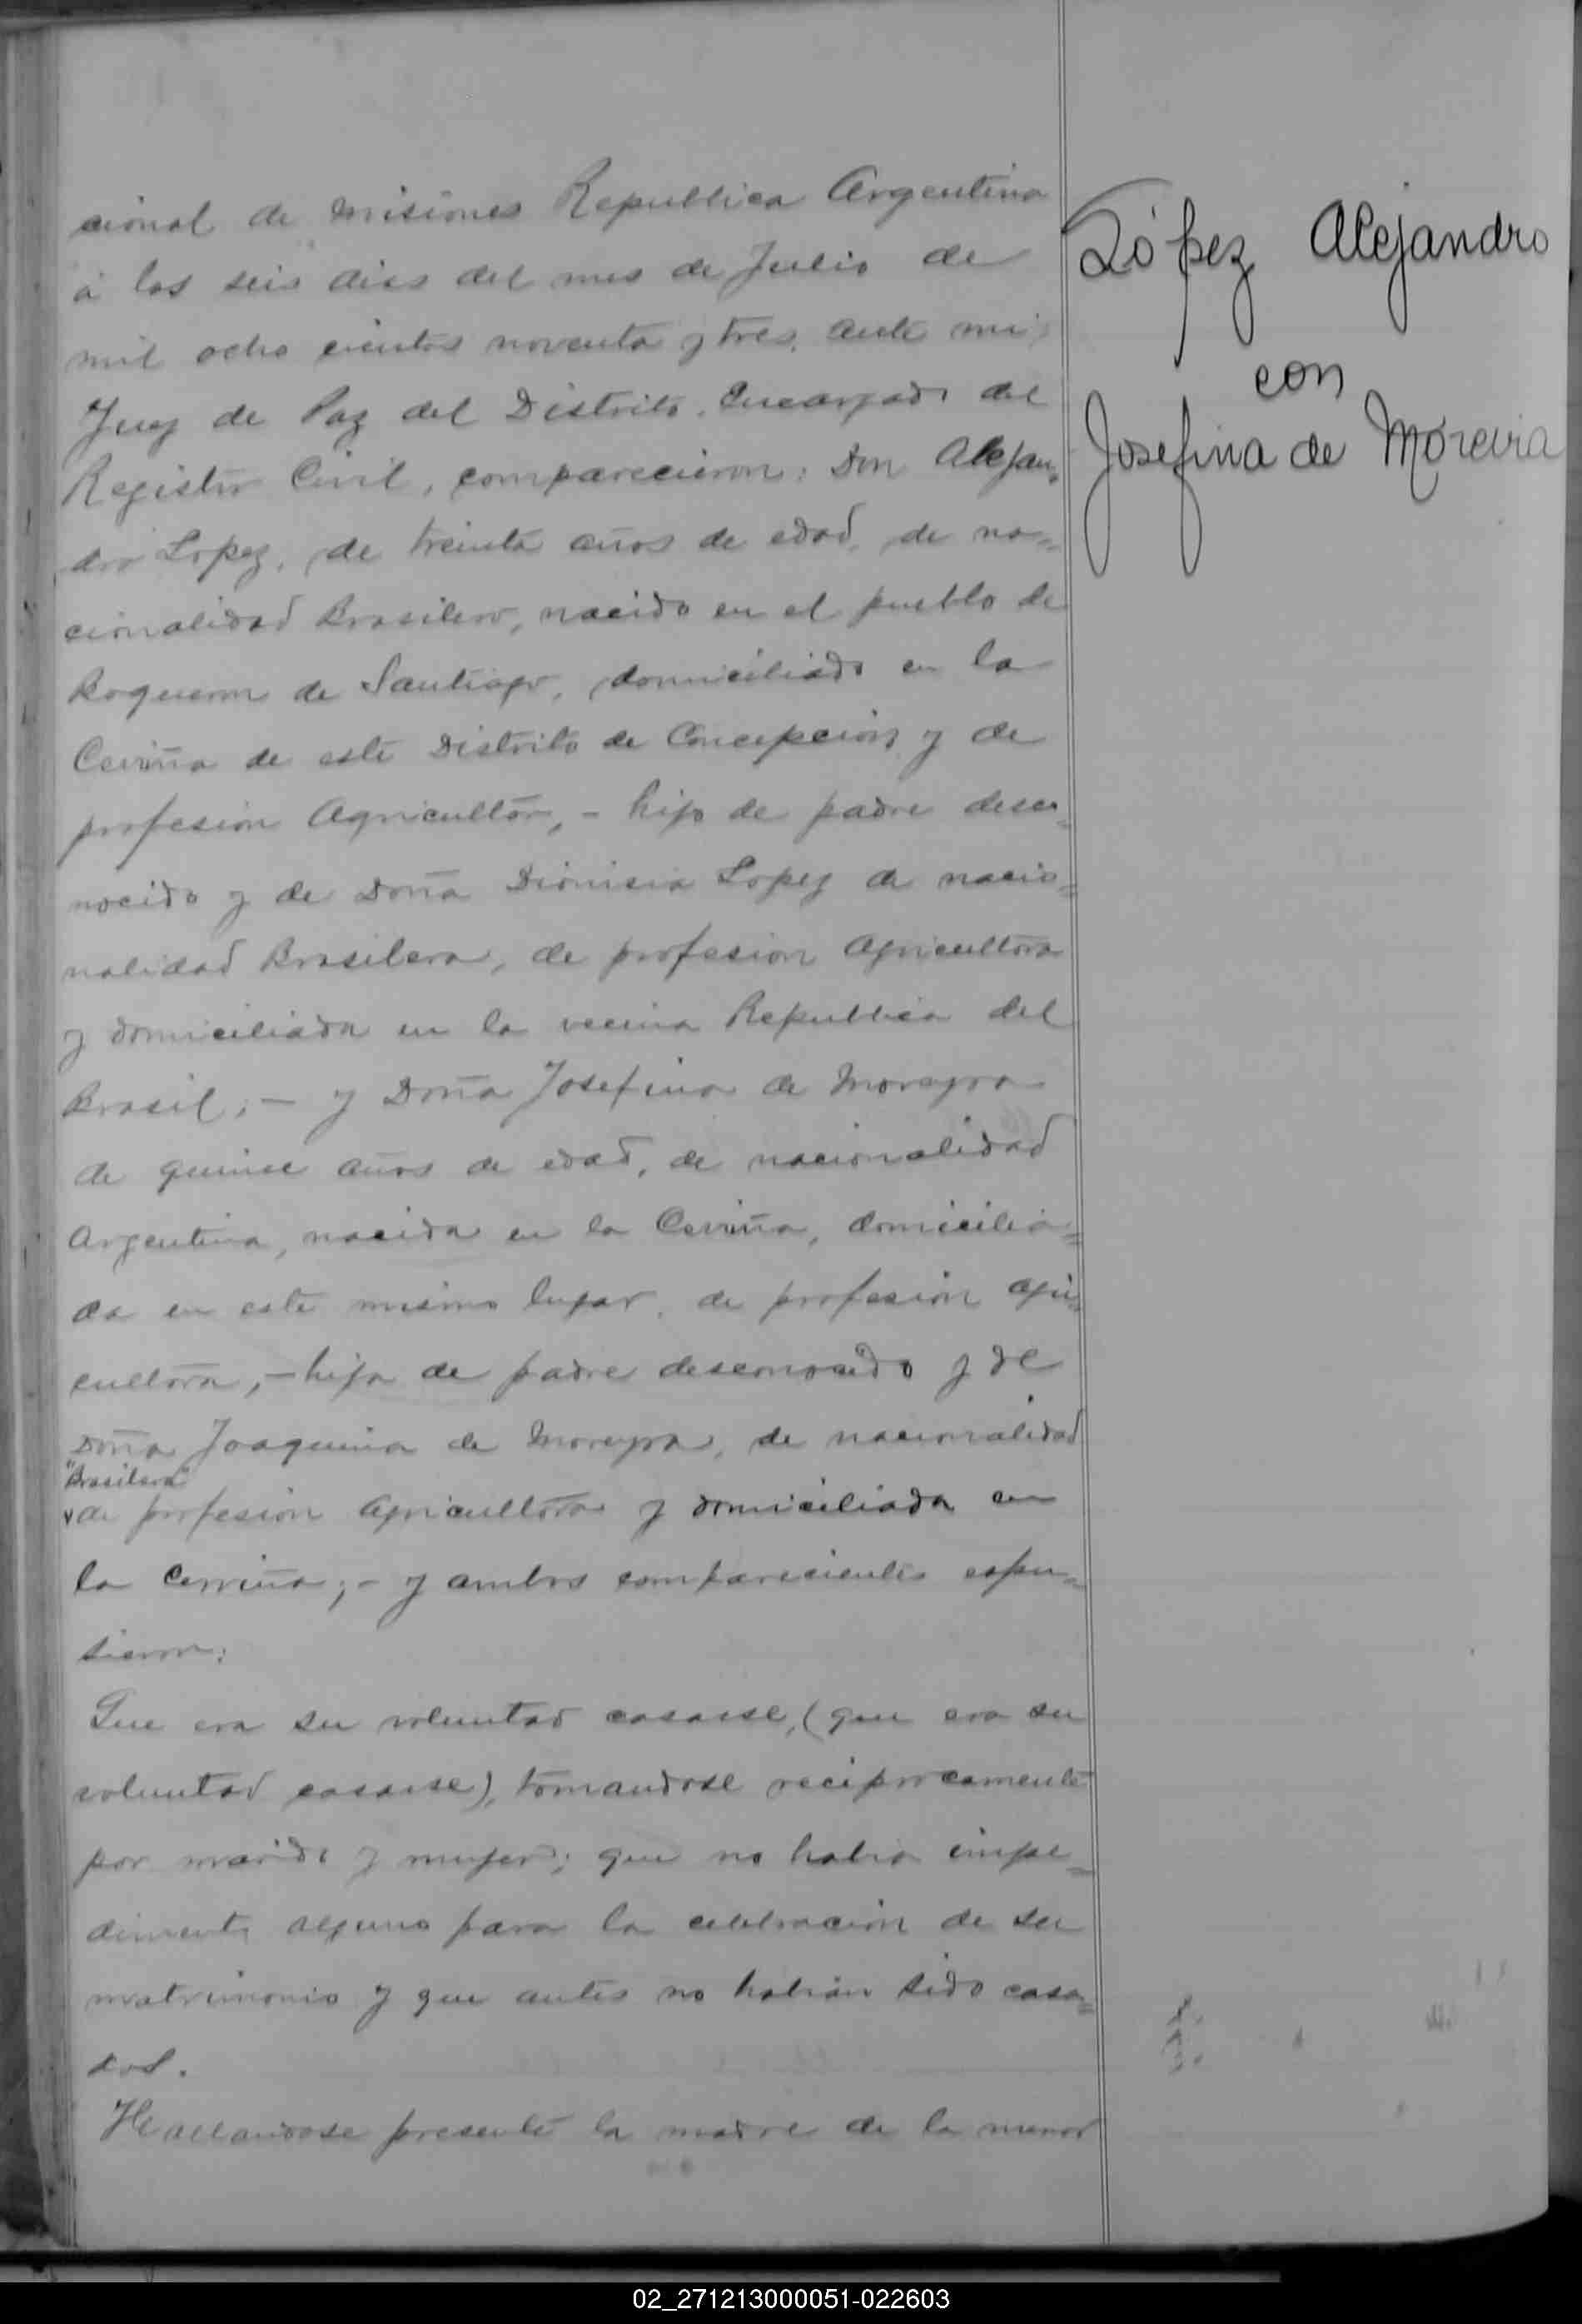 cional de Misiones Republica Argentina
á los seis dias del mes de Julio de
mil ocho cientos noventa y tres, ante mi
Juez de Paz del Distrito, Encargado del
Registro Civil, comparecieron: Don Alejan=
dro Lopez, de treinta años de edad, de na=
cionalidad Brasilero, nacido en el pueblo de
Boqueron de Santiago, domiciliado en la
Cerviña de este Distrito de Concepcion y de
profesion Agricultor, - hijo de padre desco=
nocido y de Doña Dionisia Lopez de nacio=
nalidad Brasilera, de profesion Agricultora
y domiciliada en la vecina Republica del
Brasil; - y Doña Josefina de Moreyra
de quince años de edad, de nacionalidad
Argentina, nacida en la Cerviña, domicilia=
da en este mismo lugar, de profesion agri=
cultora, - hija de padre desconocido y de
Doña Joaquina de Moreyra, de nacionalidad
"Brasilera"
de profesion Agricultora y domiciliada en
la Cerviña; - y ambos comparecientes espu=
sieron:
Que era su voluntad casarse, (que era su
voluntad casarse), tomandose reciprocamente
por marido y mujer; que no habia impe=
dimento alguno para la celebracion de su
matrimonio y que antes no habian sido casa=
dos.
Hallandose presente la madre de la menor
López Alejandro
con
Josefina de Moreira
02_271213000051-022603